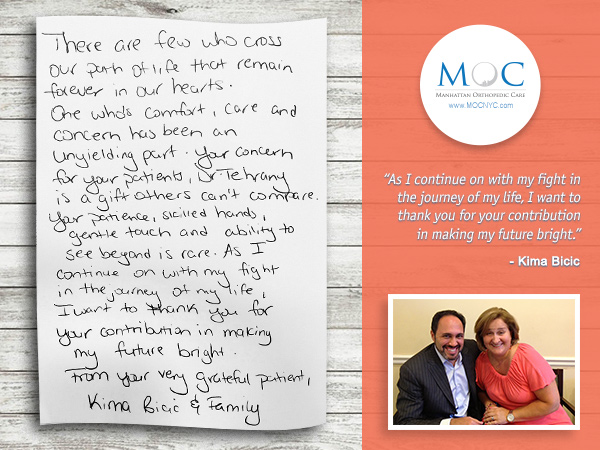 There are few who cross
our path of life that remain
forever in our hearts.
One who's comfort, care and
concern has been an
unyielding part. Your concern
for your patients, Dr Tehrany
is a gift others can't compare.
Your patience, skilled hands,
gentle touch and ability to
see beyond is rare. As I
continue on with my fight
in the journey of my life,
I want to thank you for
your contribution in making
my future bright.
From your very grateful patient,
Kima Bicic & Family
MOC
MANHATTAN ORTHOPEDIC CARE
www.MOCNYC.com
“As I continue on with my fight in
the journey of my life, I want to
thank you for your contribution
in making my future bright.”
- Kima Bicic